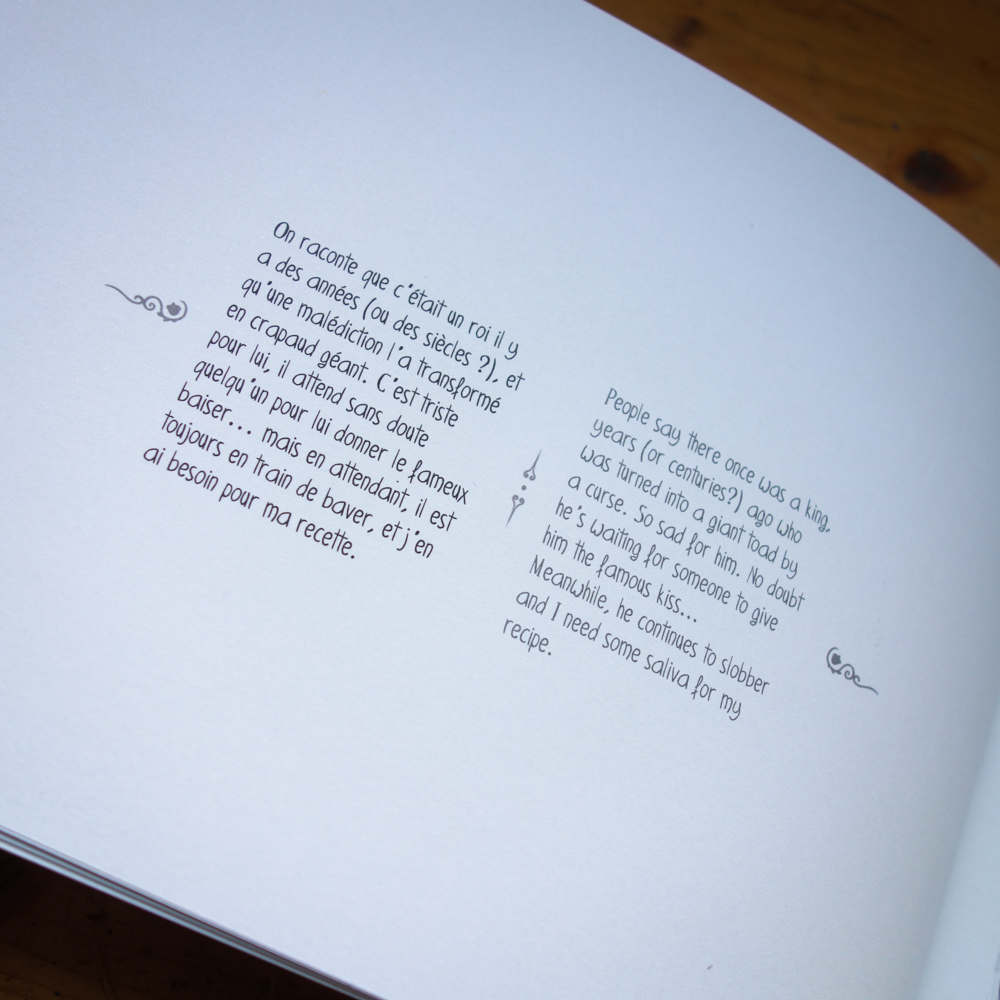 On raconte que c'était un roi il y
a des années (ou des siècles ?), et
qu'une malédiction l'a transformé
en crapaud géant. C'est triste
pour lui, il attend sans doute
quelqu'un pour lui donner le fameux
baiser... mais en attendant, il est
toujours en train de baver, et j'en
ai besoin pour ma recette.
People say there once was a king,
years (or centuries?) ago who
was turned into a giant toad by
a curse. So sad for him. No doubt
he's waiting for someone to give
him the famous kiss...
Meanwhile, he continues to slobber
and I need some saliva for my
recipe.